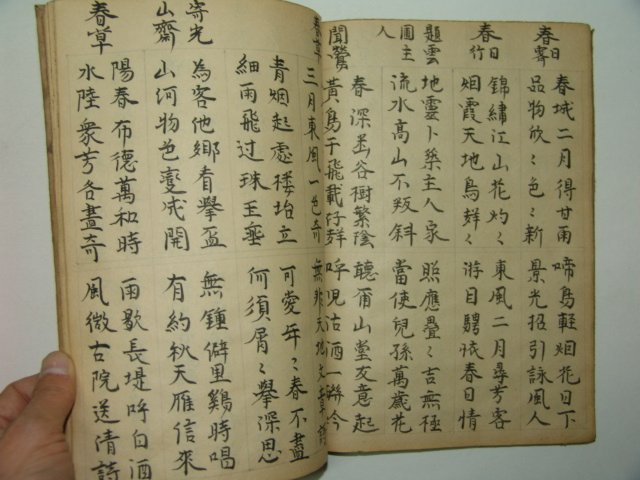 春日霽
春城二月得甘雨 啼鳥軽烟花日下
品物欣〻色〻新 景光招引詠風人
春日行
錦繡江山花灼〻 東風二月尋芳客
烟霞天地鳥群〻 游目騁懷春日情
題雲圃主人
地靈卜築主人家 照應疊〻吉無極
流水高山不叛斜 當使兒孫萬歲花
聞鶯
春深幽谷樹繁陰 聽爾山堂友意起
黃鳥于飛載好群 呼兒沽酒一聯今
三月東風一色奇 天地文章詩
青烟起處楼坮立 可愛年〻春不盡
細雨飛过珠玉垂 何須屑〻擧深思
寄光山齋
為客他鄉看擧盃 無鍾僻里鷄時唱
山河物色變成開 有約秋天雁信來
春草
陽春布德萬和時 雨歇長堤呼白酒
水陸衆芳各盡奇 風微古院送清詩